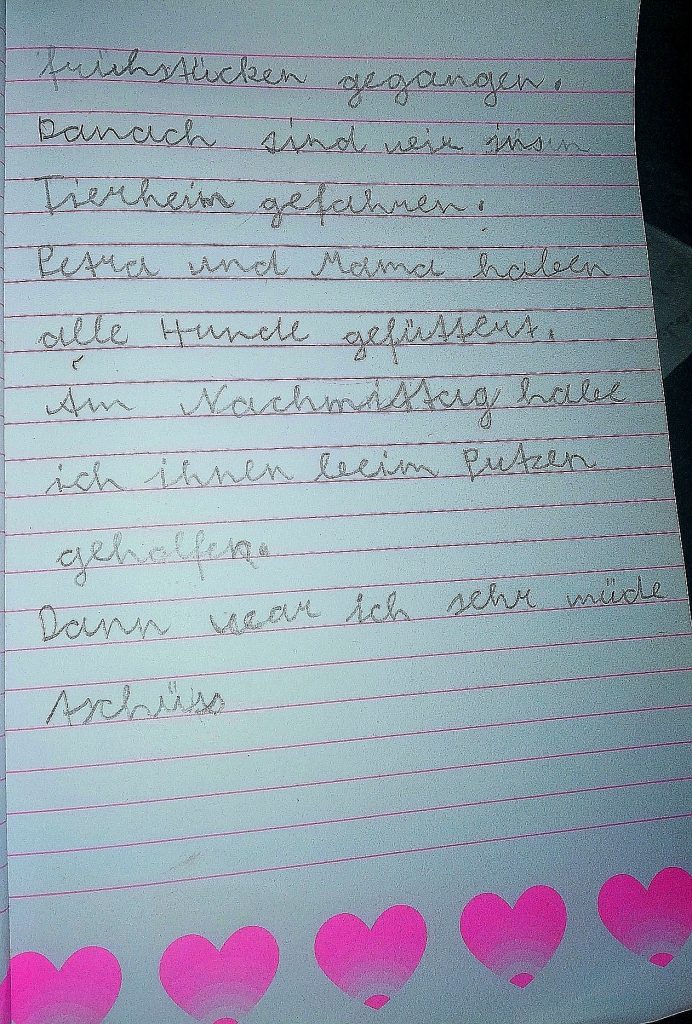 frühstücken gegangen.
Danach sind wir ins
Tierheim gefahren.
Petra und Mama haben
alle Hunde gefüttert.
Am Nachmittag habe
ich ihnen beim Putzen
geholfen.
Dann war ich sehr müde
Tschüss